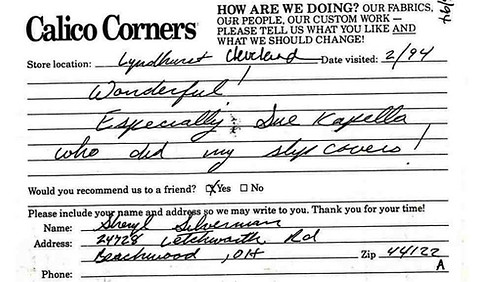 Calico Corners
HOW ARE WE DOING? OUR FABRICS,
OUR PEOPLE, OUR CUSTOM WORK —
PLEASE TELL US WHAT YOU LIKE AND
WHAT WE SHOULD CHANGE!
Store location: Lyndhurst Cleveland Date visited: 2/94
Wonderful!
Especially: Sue Kapella
who did my slip covers!
Would you recommend us to a friend? ☒ Yes ☐ No
Please include your name and address so we may write to you. Thank you for your time!
Name: Sheryl Silverman
Address: 24728 Letchworth Rd
Beachwood, OH Zip 44122
A
Phone: